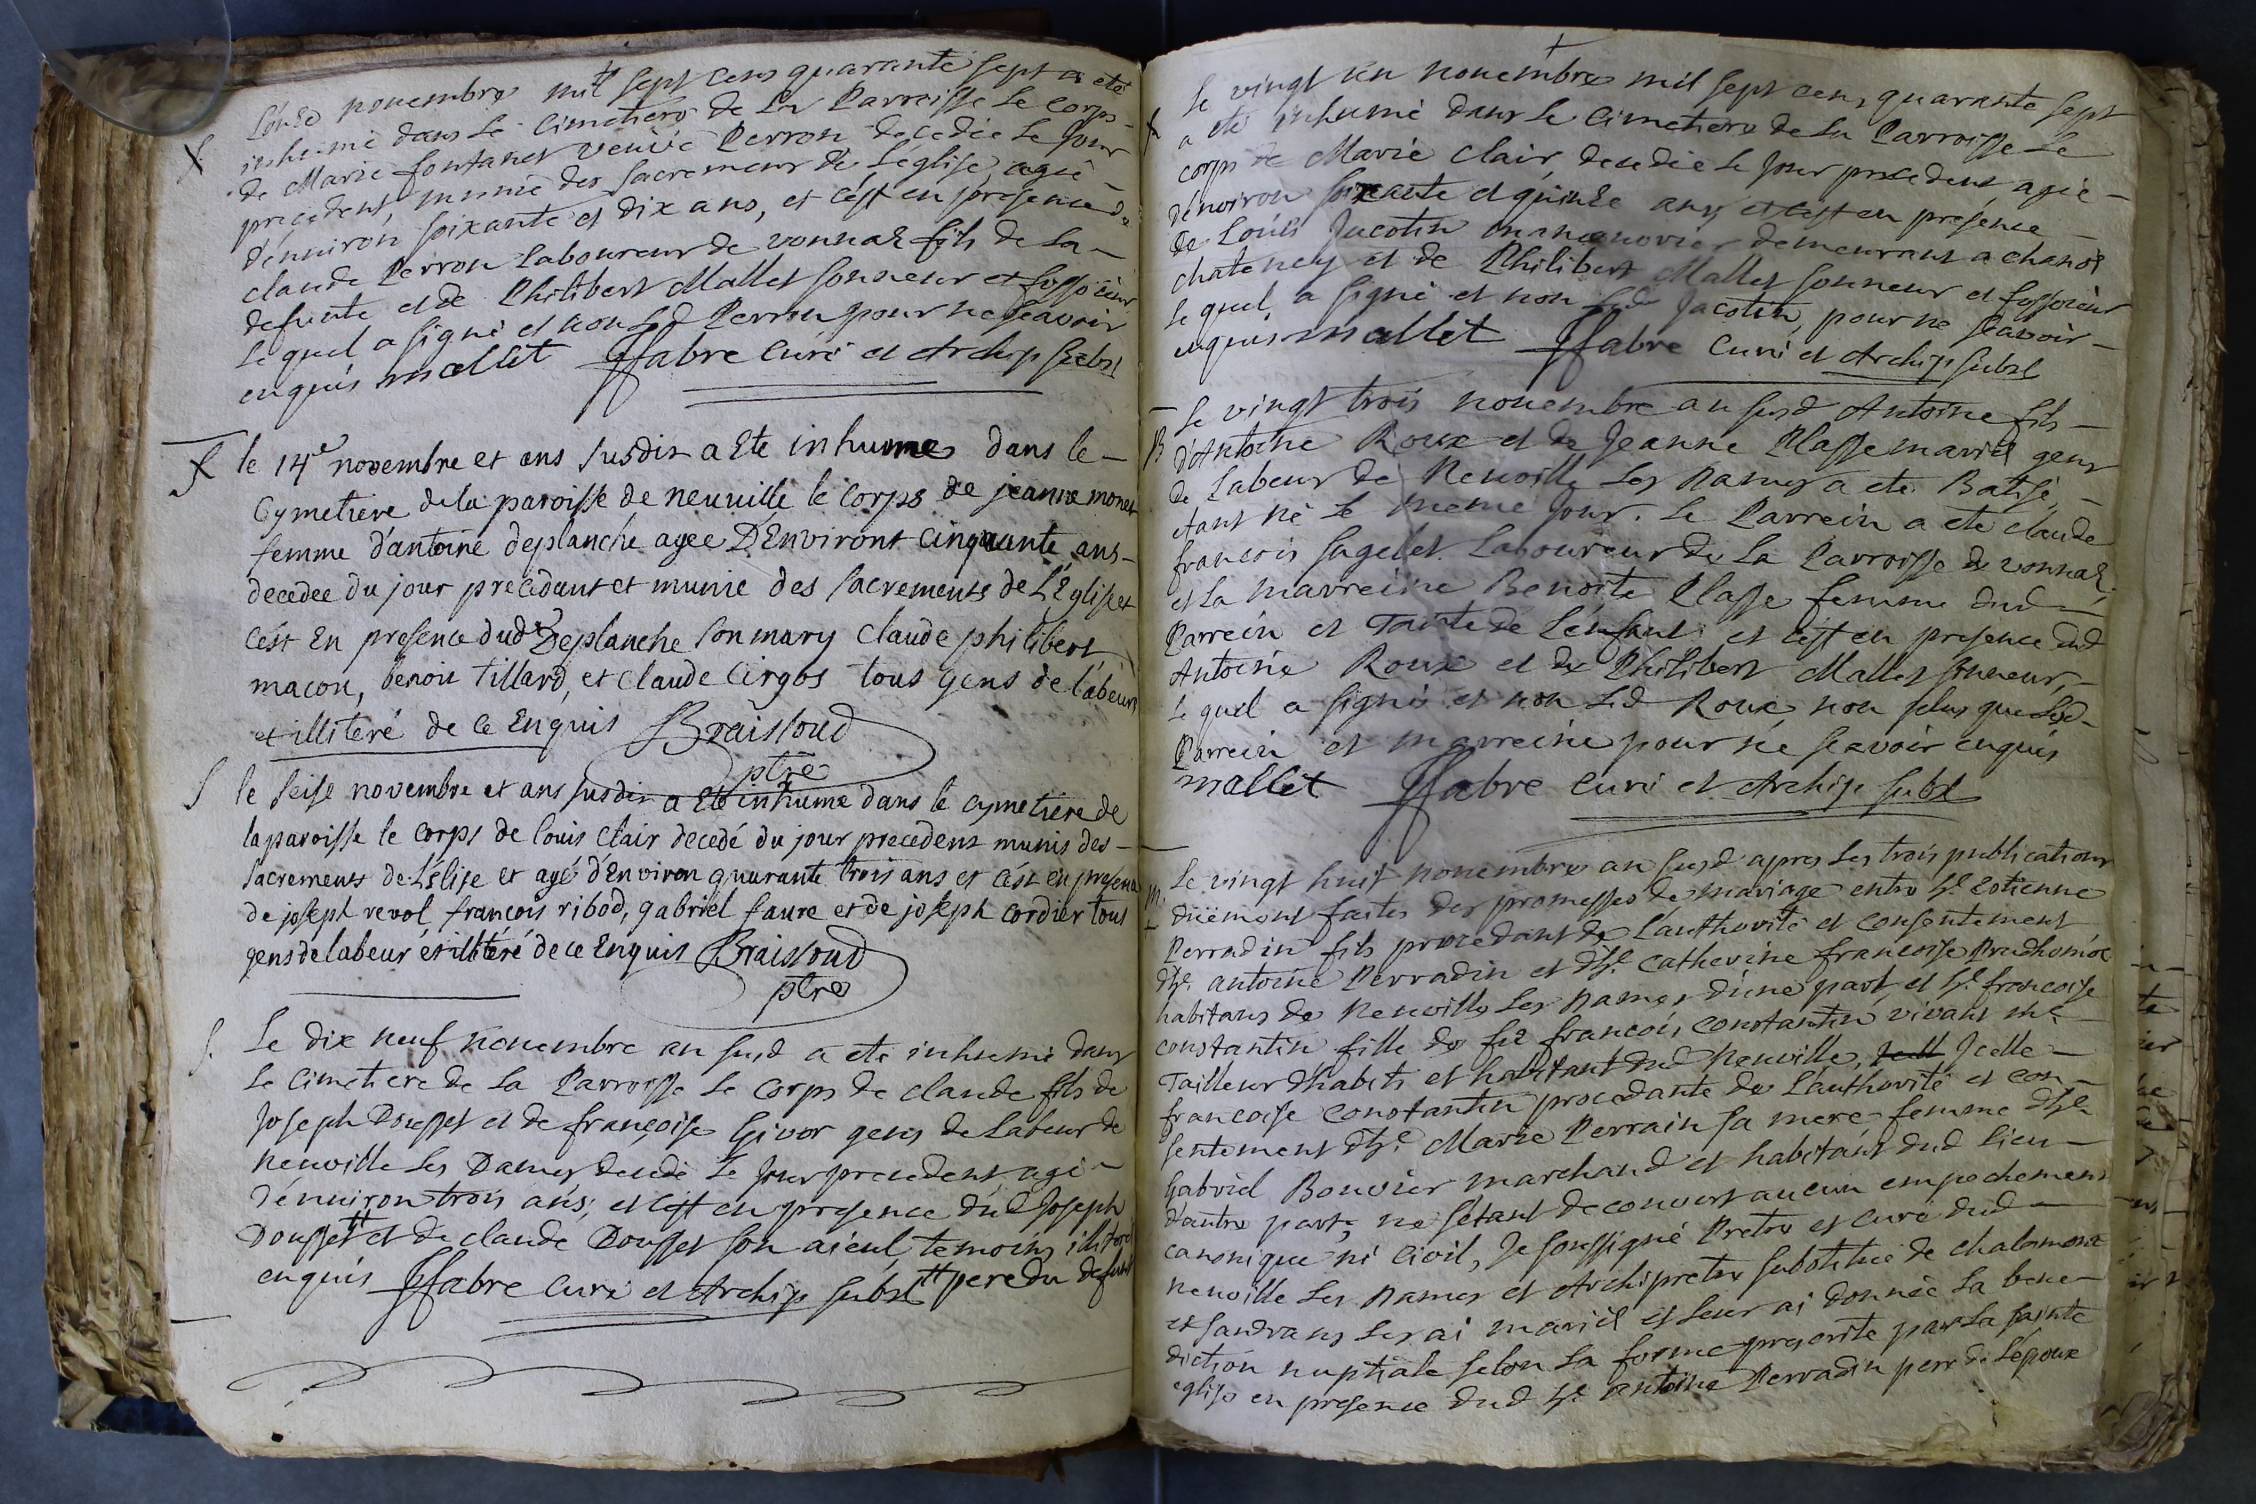 L'onze novembre mil sept cens quarante sept a eté
S. inhumé dans le Cimetiere de la Parroisse le Corps
de Marie fontanet veuve Perron decedée le jour
precedent, munie des sacremens de l'église agée
d'environ soixante et dix ans, et c'est en presence de
claude Perron Laboureur de vonnaz fils de la
defunte et de Philibert Mallet sonneur et fossoieur
le quel a signé et non led Perron pour ne scavoir
enquis mallet ffabre Curé et Archip subst
S le 14e novembre et ans susdit a Eté inhumé dans le
Cymetiere de la paroisse de neuville le corps de jeanne monet
femme d'antoine deplanche agee D'Environt cinquante ans
decedee du jour precedant et munie des sacrements de L'Eglise et
c'est En presence dud Deplanche son mary claude philibert
macon, benoit Tillard, et claude Cirgos tous gens de labeur
et illiteré de ce Enquis Braissoud
ptre
S le seise novembre et ans susdit a Eté inhumé dans le cymetiere de
la paroisse le corps de louis clair decedé du jour precedent munis des
sacrements de L'Eglise et agé d'Environ quarante trois ans et c'est en presence
de joseph revol françois ribod, gabriel faure et de joseph cordier tous
gens de labeur et illiteré de ce Enquis Braissoud
ptre
S. Le dix neuf novembre an susd a eté inhumé dans
le Cimetiere de la Parroisse le Corps de claude fils de
Joseph Dousset et de françoise Givor gens de Labeur de
Neuville les Dames decedé le jour precedent agé
d'environ trois ans, et c'est en presence dud Joseph
Dousset # et de claude Dousset son aieul temoins illiterés
enquis ffabre Curé et Archip subst # pere du defunt
Le vingt un novembre mil sept cens quarante sept
S a eté inhumé dans le Cimetiere de la Parroisse le
corps de Marie Clair, decedée le jour precedent, agée
d'environ soixante et quinze ans, et c'est en présence
de Louis Jacotin manouvrier demeurant a chanoz
chateney et de Philibert Mallet sonneur et fossoieur
le quel a signé et non led Jacotin, pour ne scavoir
enquis mallet ffabre Curé et Archip subst
Le vingt trois novembre an susd Antoine fils
B d'Antoine Roux et de Jeanne Plasse mariés gens
de Labeur de Neuville Les Dames a eté Batisé
etant né le même jour. Le Parrein a eté claude
francois sagelet Laboureur de la Parroisse de vonnaz
et la Marreine Benoite Plasse femme dud
Parrein et Tante de l'enfant et c'est en presence dud
Antoine Roux et de Philibert Mallet sonneur,
le quel a signé et non led Roux non plus que lesd
Parrein et Marreine pour ne scavoir enquis
mallet ffabre curé et Archip subst
Le vingt huit novembre an susd apres les trois publications
M. düement faites des promesses de mariage entre Sr Estienne
Perradin fils procedant de L'authorité et consentement
dSr antoine Perradin et dlle Catherine francoise Prudhomme
habitans de Neuville Les Dames d'une part, et dlle francoise
constantin fille de feu francois constantin vivant me
Tailleur d'habits et habitant dud Neuville, Icelle
francoise Constantin procedante de L'authorité et con-
sentement dlle Marie Perrain sa mere, femme dSr
Gabriel Bouvier marchand et habitant dud lieu
d'autre part, ne s'étant decouvert aucun empechement
canonique ni civil, Je soussigné Pretre et curé dud
Neuville Les Dames et Archipretre substitué de chalamont
et sandrans les ai mariés et leur ai donnée la bene-
diction nuptiale selon la forme prescrite par la sainte
eglise en presence dud Sr Antoine Perradin pere de l'époux